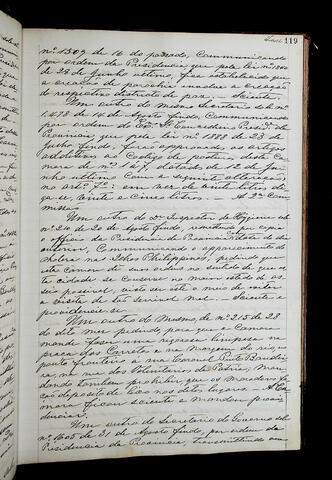 119
nº 1509 de 16 do passado, Communicando
por ordem da Presidencia, que pela lei nº 1842
de 28 de Junho ultimo, fica estabelecido que
a creação de parochia involve a creação
do respectivo districto de paz. — Sciente
Um outro do mesmo Secretario sob nº
1478 de 14 de Agosto findo, Communicando
por ordem do Exmº Sr Conselheiro Presidte da
Provincia que pela lei nº 1880 de 23 de
Julho findo, foram approvados, os artigos
additivos ao Codigo de postura desta Ca-
mara de nº 1 a 7, datados de 12 de Ju-
nho ultimo com a seguinte alteração
no artº 7º: em vez de vinte litros di-
ga-se, vinte e cinco litros. — A 3ª Com-
missão
Um outro do Dr Inspector de Hygiene sob
nº 210 de 20 de Agosto findo, remettendo por copia
o officio da Presidencia da Provincia
anterior, Communicando o apparecimento do
Cholera nas Ilhas Philippinas, pedindo que
esta Camara dê suas ordens no sentido de que es-
ta cidade se conserve no maior estado de as-
seio possivel, visto ser este o meio de evitar
a visita de tal terrivel mal. — Sciente e
providencie-se
Um outro do mesmo, de nº 215 de 28
do dito mez pedindo, para que a Camara
mande fazer uma rigorosa limpeza na
praça das Carretas e na margem do rio,
porto fronteiro a rua Coronel Pinto Bandei-
ra, na rua dos Voluntarios da Patria; Man-
dando tambem prohibir que os moradores fa-
ção deposito de lixo nos ditos lugares. — A Ca-
mara ficou sciente e mandou provi-
denciar.
Um outro do Secretario do Governo sob
nº 1605 de 31 de Agosto findo, por ordem da
Presidencia da Provincia, transmittindo em